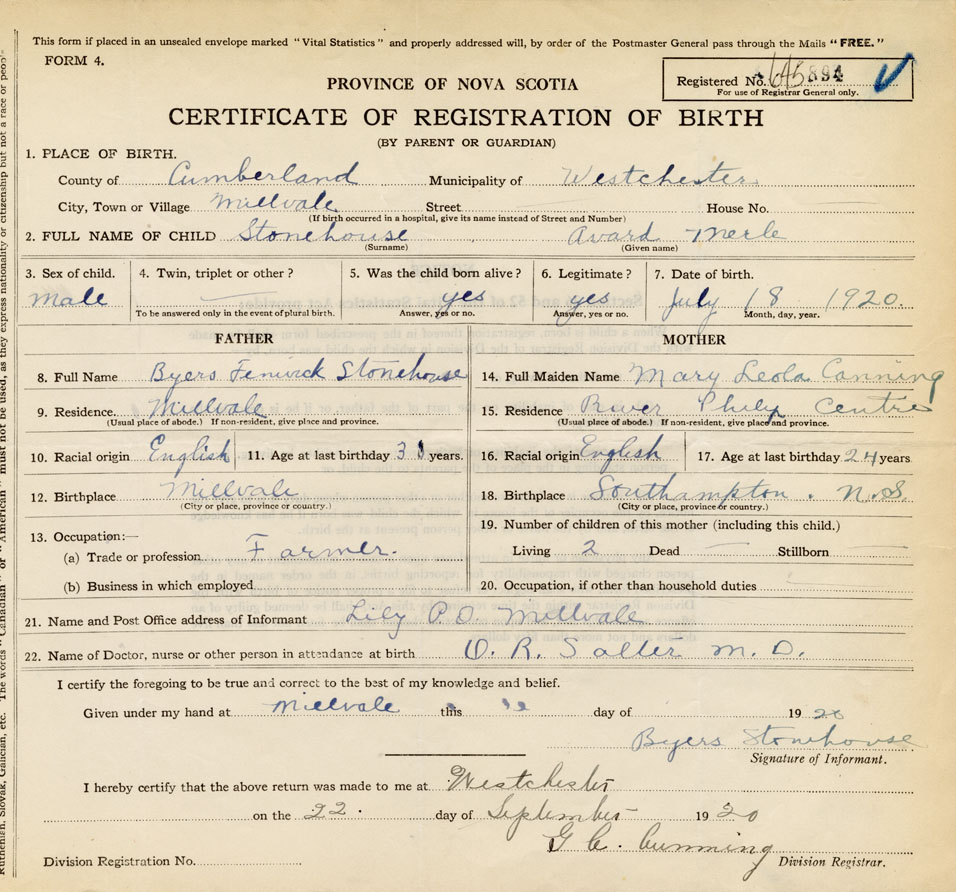 This form if placed in an unsealed envelope marked "Vital Statistics" and properly addressed will, by order of the Postmaster General pass through the Mails "FREE."
FORM 4.
Registered No.
For use of Registrar General only.
PROVINCE OF NOVA SCOTIA
CERTIFICATE OF REGISTRATION OF BIRTH
(BY PARENT OR GUARDIAN)
1. PLACE OF BIRTH.
County of Cumberland Municipality of Westchester
City, Town or Village Millvale Street House No.
(If birth occurred in a hospital, give its name instead of Street and Number)
2. FULL NAME OF CHILD Stonehouse Avard Merle
(Surname) (Given name)
3. Sex of child. 4. Twin, triplet or other? 5. Was the child born alive? 6. Legitimate? 7. Date of birth.
Male yes yes July 18 1920.
To be answered only in the event of plural birth. Answer, yes or no. Answer, yes or no. Month, day, year.
FATHER MOTHER
8. Full Name Byers Fenwick Stonehouse 14. Full Maiden Name Mary Leola Canning
9. Residence. Millvale 15. Residence River Philip Centre
(Usual place of abode.) If non-resident, give place and province. (Usual place of abode.) If non-resident, give place and province.
10. Racial origin English 11. Age at last birthday years. 16. Racial origin English 17. Age at last birthday 24 years.
12. Birthplace Millvale 18. Birthplace Southampton. N.S.
(City or place, province or country.) (City or place, province or country.)
13. Occupation:— 19. Number of children of this mother (including this child.)
(a) Trade or profession Farmer. Living 2 Dead Stillborn
(b) Business in which employed 20. Occupation, if other than household duties
21. Name and Post Office address of Informant Lily P.O. Millvale
22. Name of Doctor, nurse or other person in attendance at birth O. R. Salter M. D.
I certify the foregoing to be true and correct to the best of my knowledge and belief.
Given under my hand at Millvale this day of 1920
Byers Stonehouse
Signature of Informant.
I hereby certify that the above return was made to me at Westchester
on the 22. day of September 1920
G. C. Cumming
Division Registration No. Division Registrar.
Ruthenian, Slovak, Galician, etc. The words "Canadian" or "American" must not be used, as they express nationality or citizenship but not a race or people